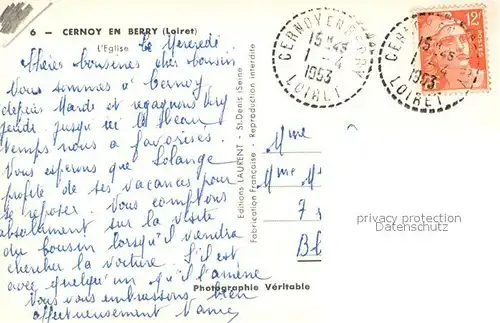 6 - CERNOY EN BERRY (Loiret)
L'Eglise
le Mercredi
Chères cousines cher cousin
Nous sommes à Cernoy
depuis Mardi et regagnons Ivry
jeudi. jusqu'ici le beau
temps nous a favorisés.
Nous espérons que Solange
profite de ses vacances pour
se reposer. Nous comptons
absolument sur la visite
du cousin lorsqu'il viendra
chercher la voiture. S'il est
avec quelqu'un qu'il l'amène
Nous vous embrassons bien
affectueusement
Editions LAURENT - St-Denis s/Seine
Fabrication Française - Reproduction interdite
CERNOY EN BERRY
15H45
1-4
1953
LOIRET
12F
CERNOY
15H45
1-4
1953
LOIRET
Mme
Mme
7
Photographie Véritable
privacy protection
Datenschutz